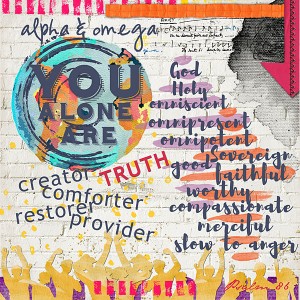 alpha & omega
YOU
ALONE
ARE:
God
Holy
omniscient
omnipresent
omnipotent
Sovereign
good
faithful
worthy
compassionate
merciful
slow to anger
TRUTH
creator
comforter
restorer
provider
Psalm 86